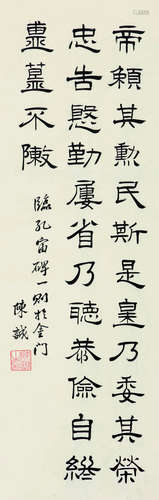 帝賴其勳民斯是皇乃委其榮
忠告慇勤屢省乃聽恭儉自終
簠簋不敶
臨孔宙碑一則於金门
陳誠